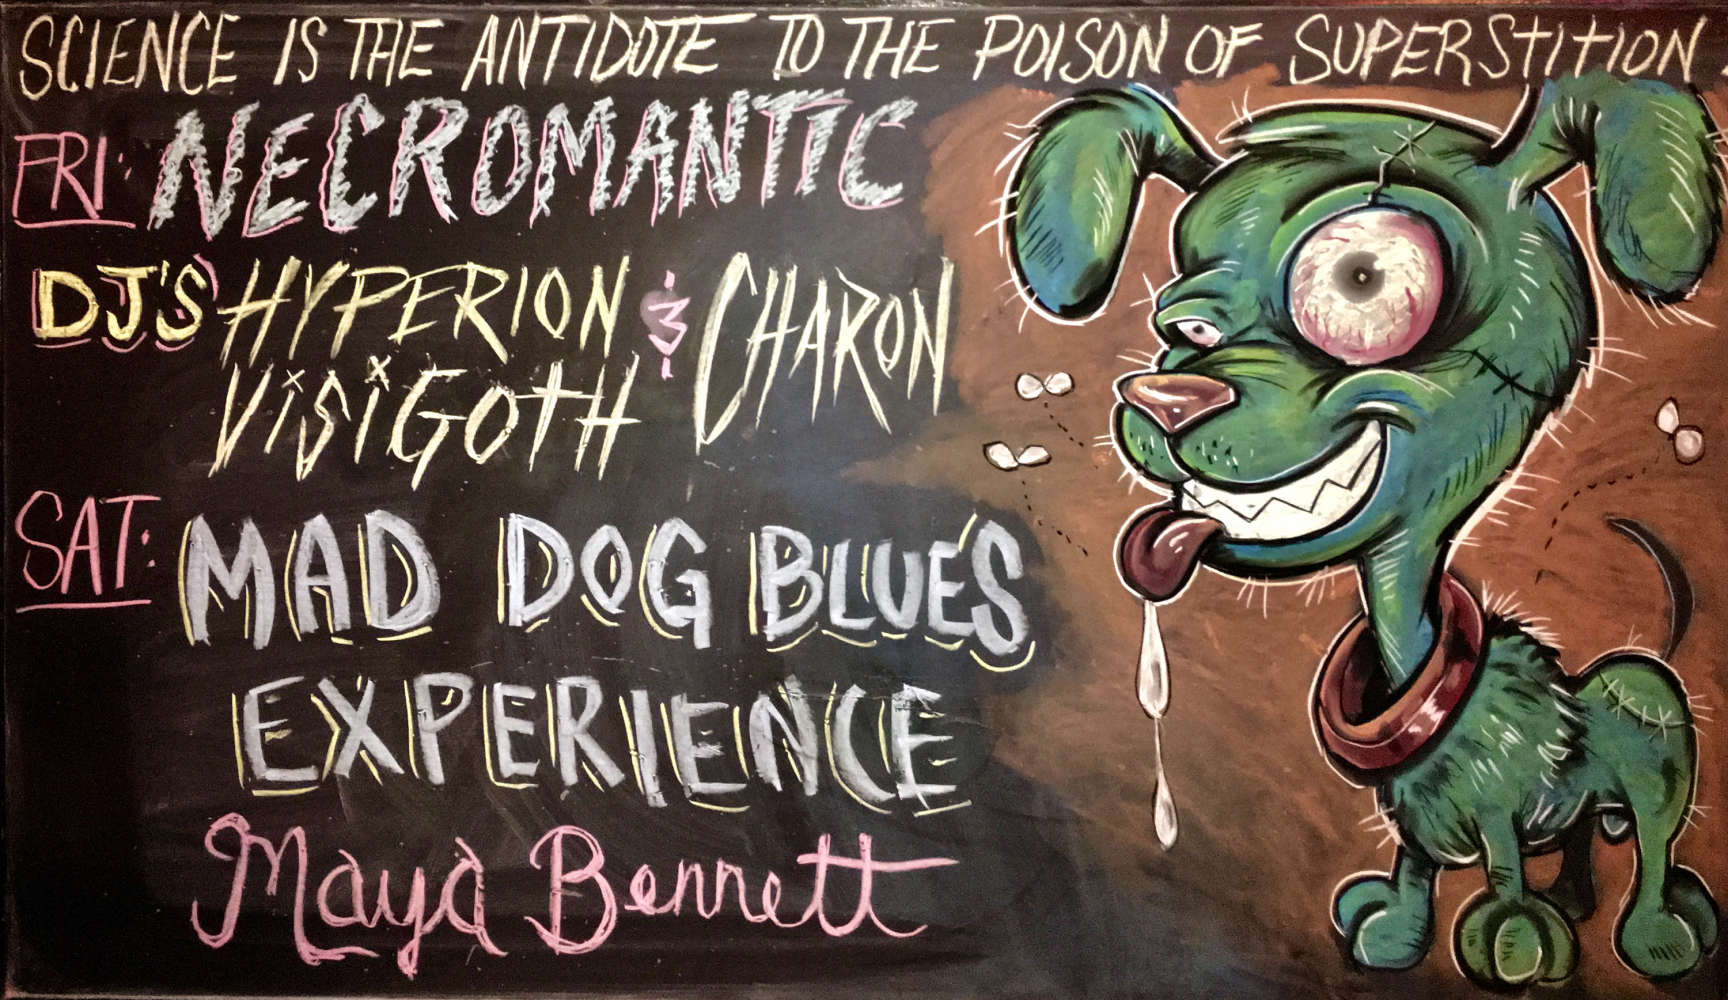 SCIENCE IS THE ANTIDOTE TO THE POISON OF SUPERSTITION.
FRI: NECROMANTIC
DJ'S HYPERION & CHARON
VISIGOTH
SAT: MAD DOG BLUES
EXPERIENCE
Maya Bennett